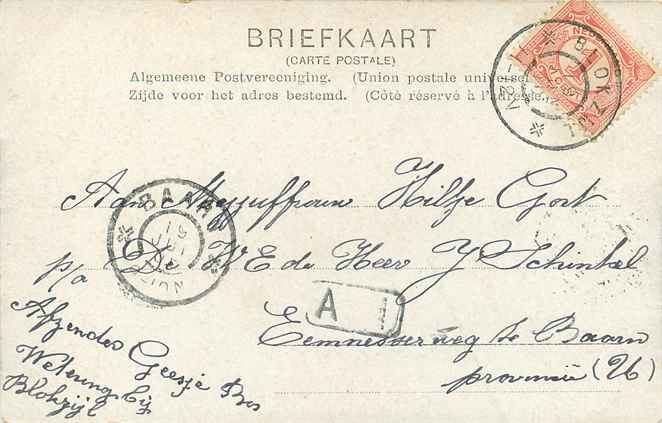 BRIEFKAART
(CARTE POSTALE)
Algemeene Postvereeniging. (Union postale universel
Zijde voor het adres bestemd. (Côté réservé à l'adresse.
BLOKZIJL
Aan Mejuffrouw Hiltje Gort
p/a De W.E. de Heer J Schinkel
Eemnesserweg te Baarn
provincie (Ut)
BAARN
A
Afzender Geesje Bos
Wetering bij
Blokzijl